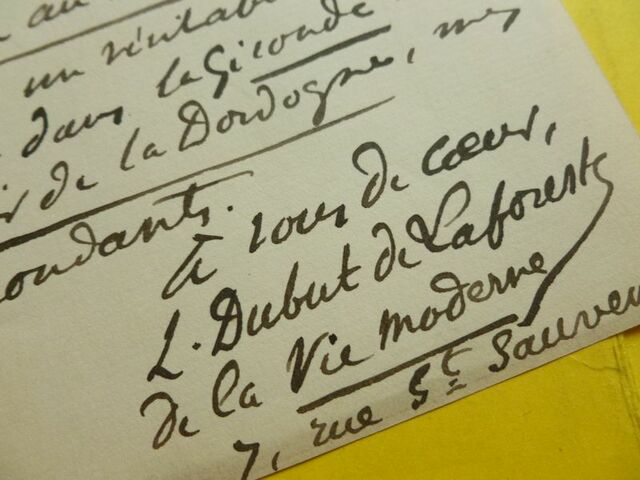 un véritab
dans la Gironde
ir de la Dordogne, mes
ondants.
à vous de cœur,
L. Dubut de Laforest
de la Vie moderne
7, rue St Sauveu